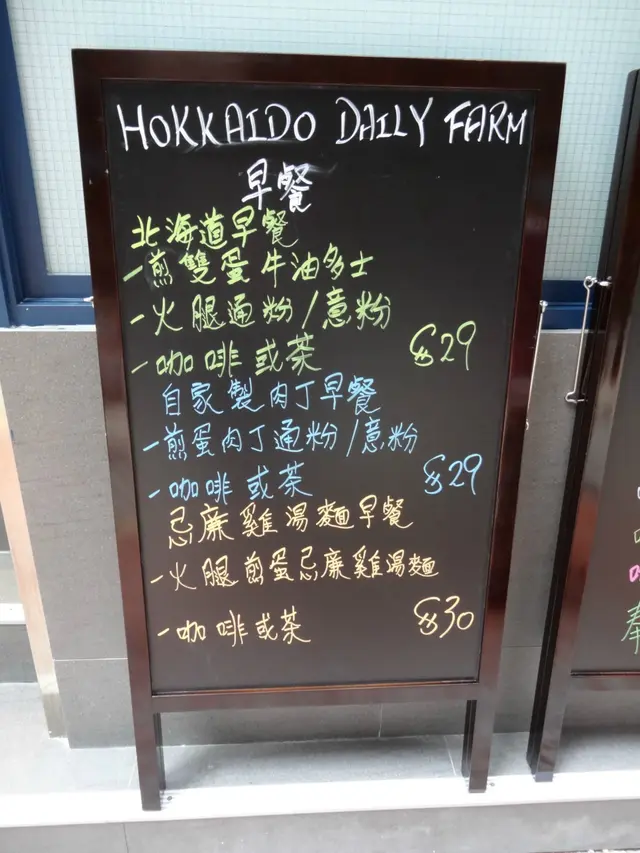 HOKKAIDO DAILY FARM
早餐
北海道早餐
-煎雙蛋牛油多士
-火腿通粉/意粉
-咖啡或茶 $29
自家製肉丁早餐
-煎蛋肉丁通粉/意粉
-咖啡或茶 $29
忌廉雞湯麵早餐
-火腿煎蛋忌廉雞湯麵
-咖啡或茶 $30